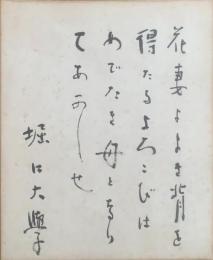 花妻よよき背を
得たるよろこびは
めでたき母となり
てあかしせ
堀口大學